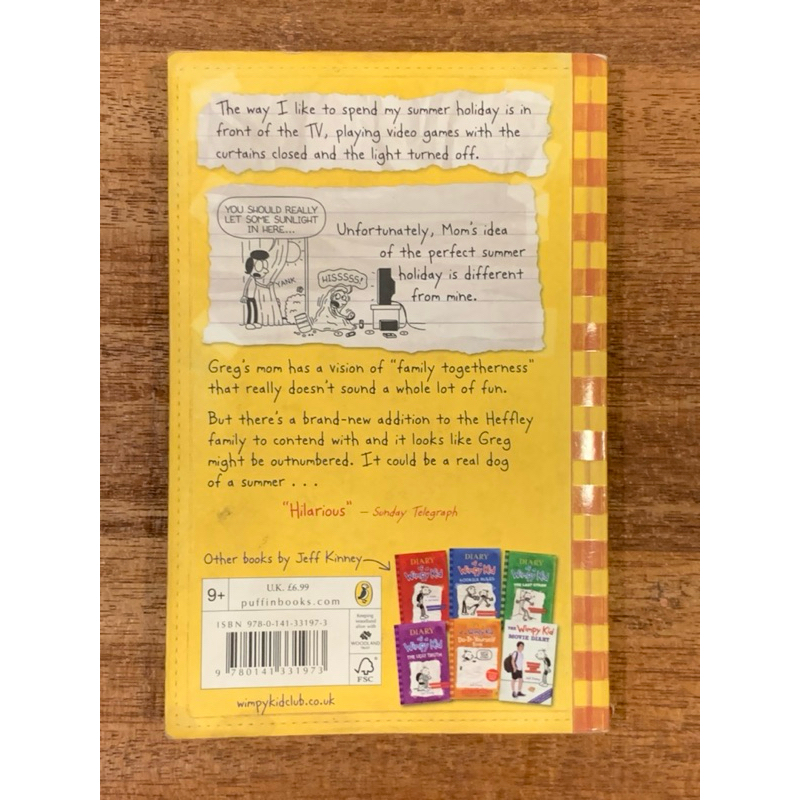 The way I like to spend my summer holiday is in
front of the TV, playing video games with the
curtains closed and the light turned off.
YOU SHOULD REALLY
LET SOME SUNLIGHT
IN HERE...
YANK
HISSSSS!
Unfortunately, Mom's idea
of the perfect summer
holiday is different
from mine.
Greg's mom has a vision of "family togetherness"
that really doesn't sound a whole lot of fun.
But there's a brand-new addition to the Heffley
family to contend with and it looks like Greg
might be outnumbered. It could be a real dog
of a summer . . .
"Hilarious" – Sunday Telegraph
Other books by Jeff Kinney
DIARY
of a
Wimpy Kid
DIARY
of a
Wimpy Kid
RODRICK RULES
DIARY
of a
Wimpy Kid
THE LAST STRAW
DIARY
of a
Wimpy Kid
THE UGLY TRUTH
Do-It-Yourself
THE Wimpy Kid
MOVIE DIARY
9+
U.K. £6.99
puffinbooks.com
ISBN 978-0-141-33197-3
9 780141 331973
Keeping
woodland
alive with
WOODLAND
TRUST
FSC
wimpykidclub.co.uk